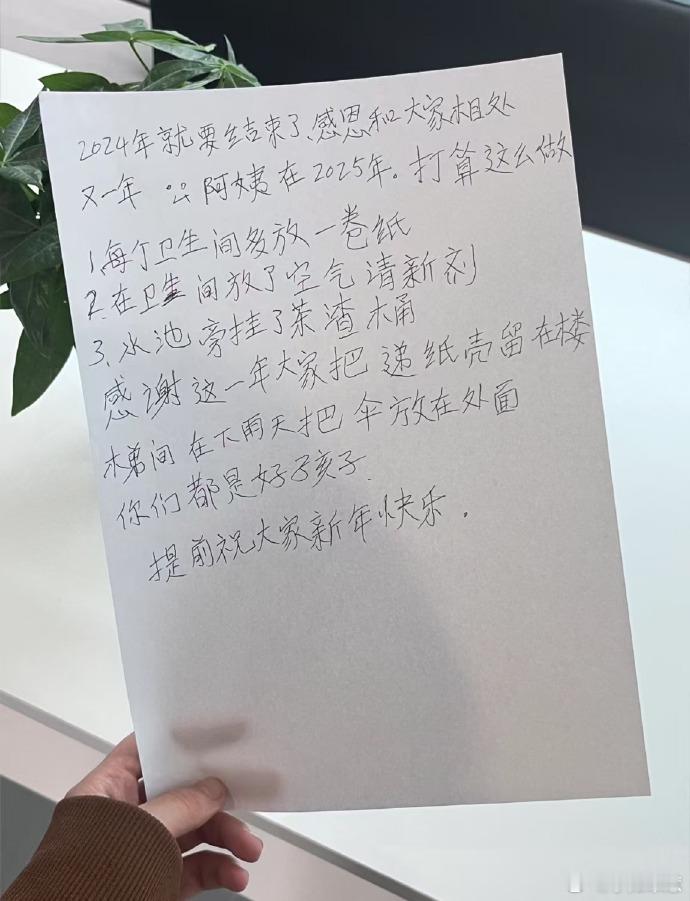 2024年就要结束了.感恩和大家相处
又一年 阿姨在2025年。打算这么做
1,每个卫生间多放一卷纸
2.在卫生间放了空气清新剂
3、水池旁挂了茶渣桶
感谢这一年大家把递纸壳留在楼
梯间在下雨天把伞放在外面
你们都是好孩子.
提前祝大家新年快乐.